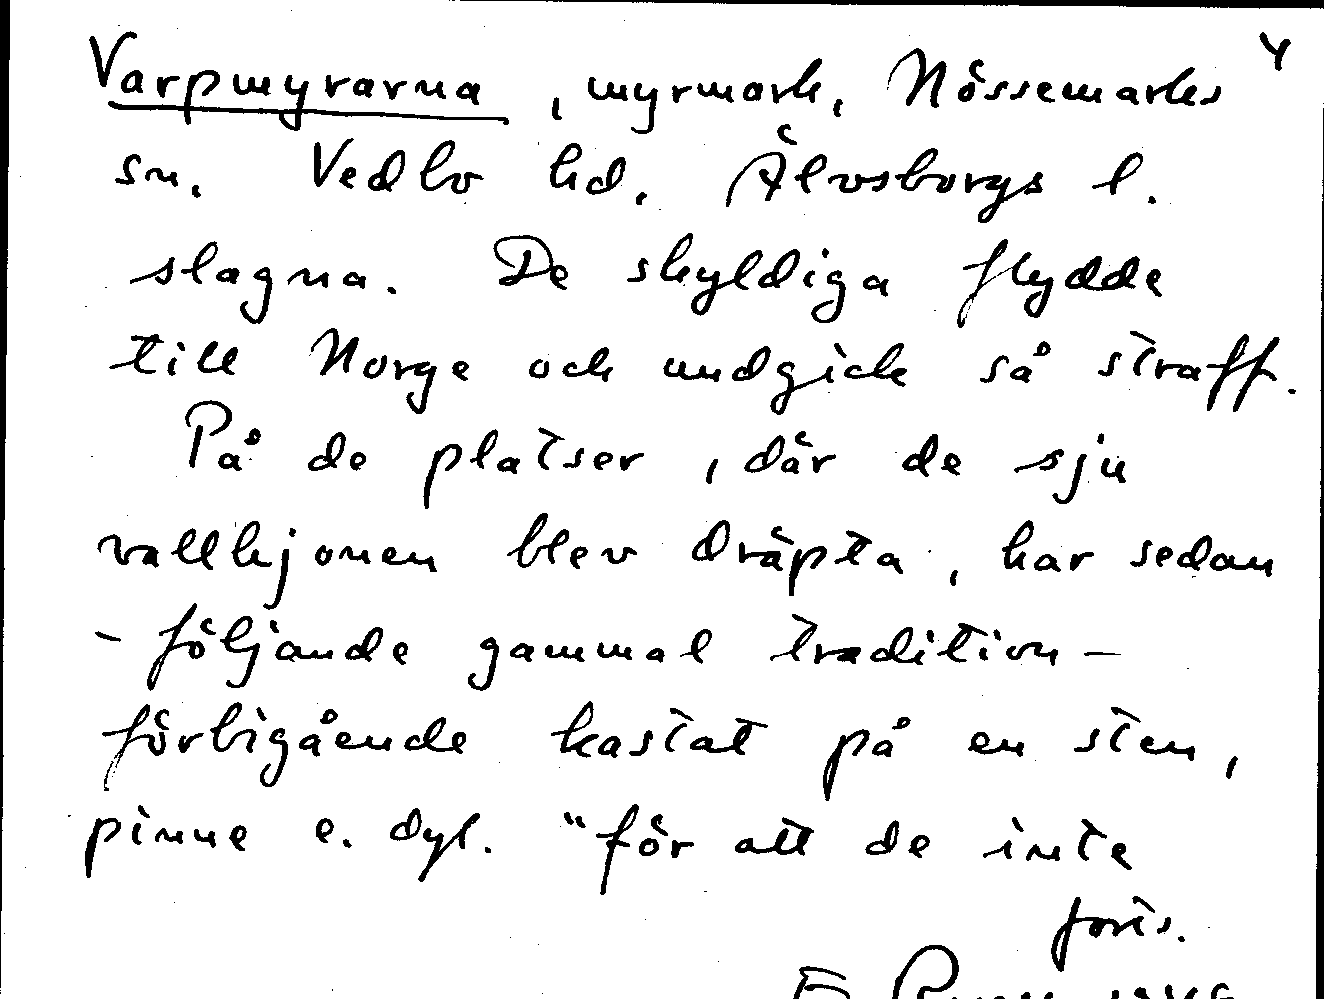 4
Varpmyrarna, myrmark, Nössemarks
sn. Vedbo hd. Älvsborgs l.
slagna. De skyldiga flydde
till Norge och undgick så straff.
På de platser, där de sju
vallhjonen blev dräpta, har sedan
- följande gammal tradition -
förbigående kastat på en sten,
pinne e. dyl. "för att de inte
forts.